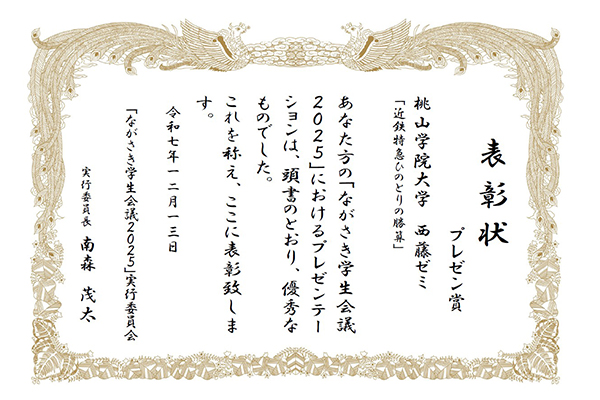 表彰状
プレゼン賞
桃山学院大学　西藤ゼミ
「近鉄特急ひのとりの勝算」
あなた方の「ながさき学生会議
2025」におけるプレゼンテー
ションは、頭書のとおり、優秀な
ものでした。
これを称え、ここに表彰致しま
す。
令和七年一二月一三日
「ながさき学生会議2025」実行委員会
実行委員長　南森　茂太